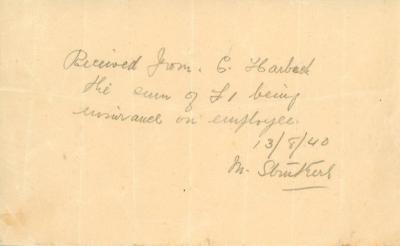 Received from. C. Harbeck
the sum of £1 being
insurance on employee.
13/8/40
M.